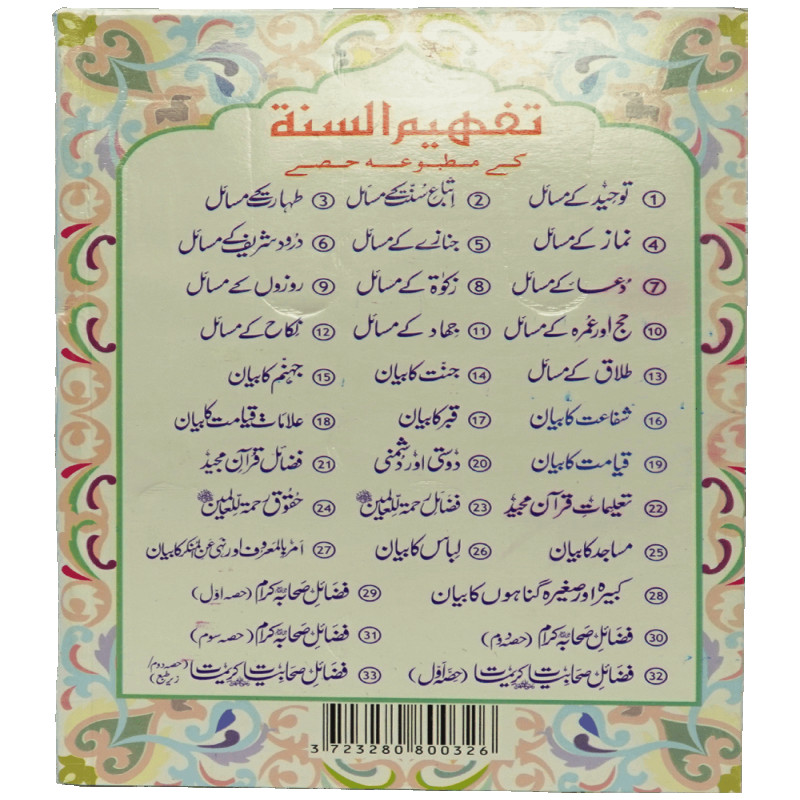 تفہیم السنة
کے مطبوعہ حصے
① توحید کے مسائل ② اتباع سنت کے مسائل ③ طہارت کے مسائل
④ نماز کے مسائل ⑤ جنازے کے مسائل ⑥ درود شریف کے مسائل
⑦ دعا کے مسائل ⑧ زکوٰۃ کے مسائل ⑨ روزوں کے مسائل
⑩ حج اور عمرہ کے مسائل ⑪ جہاد کے مسائل ⑫ نکاح کے مسائل
⑬ طلاق کے مسائل ⑭ جنت کا بیان ⑮ جہنم کا بیان
⑯ شفاعت کا بیان ⑰ قبر کا بیان ⑱ علامات قیامت کا بیان
⑲ قیامت کا بیان ⑳ دوستی اور دشمنی ㉑ فضائل قرآن مجید
㉒ تعلیمات قرآن مجید ㉓ فضائل رحمۃ للعالمین ﷺ ㉔ حقوق رحمۃ للعالمین ﷺ
㉕ مساجد کا بیان ㉖ لباس کا بیان ㉗ امر بالمعروف اور نہی عن المنکر کا بیان
㉘ کبیرہ اور صغیرہ گناہوں کا بیان ㉙ فضائل صحابہ کرام (حصہ اول)
㉚ فضائل صحابہ کرام (حصہ دوم) ㉛ فضائل صحابہ کرام (حصہ سوم)
㉜ فضائل صحابیات کریمات (حصہ اول) ㉝ فضائل صحابیات کریمات (حصہ دوم / زیر طبع)
3 723280 800326